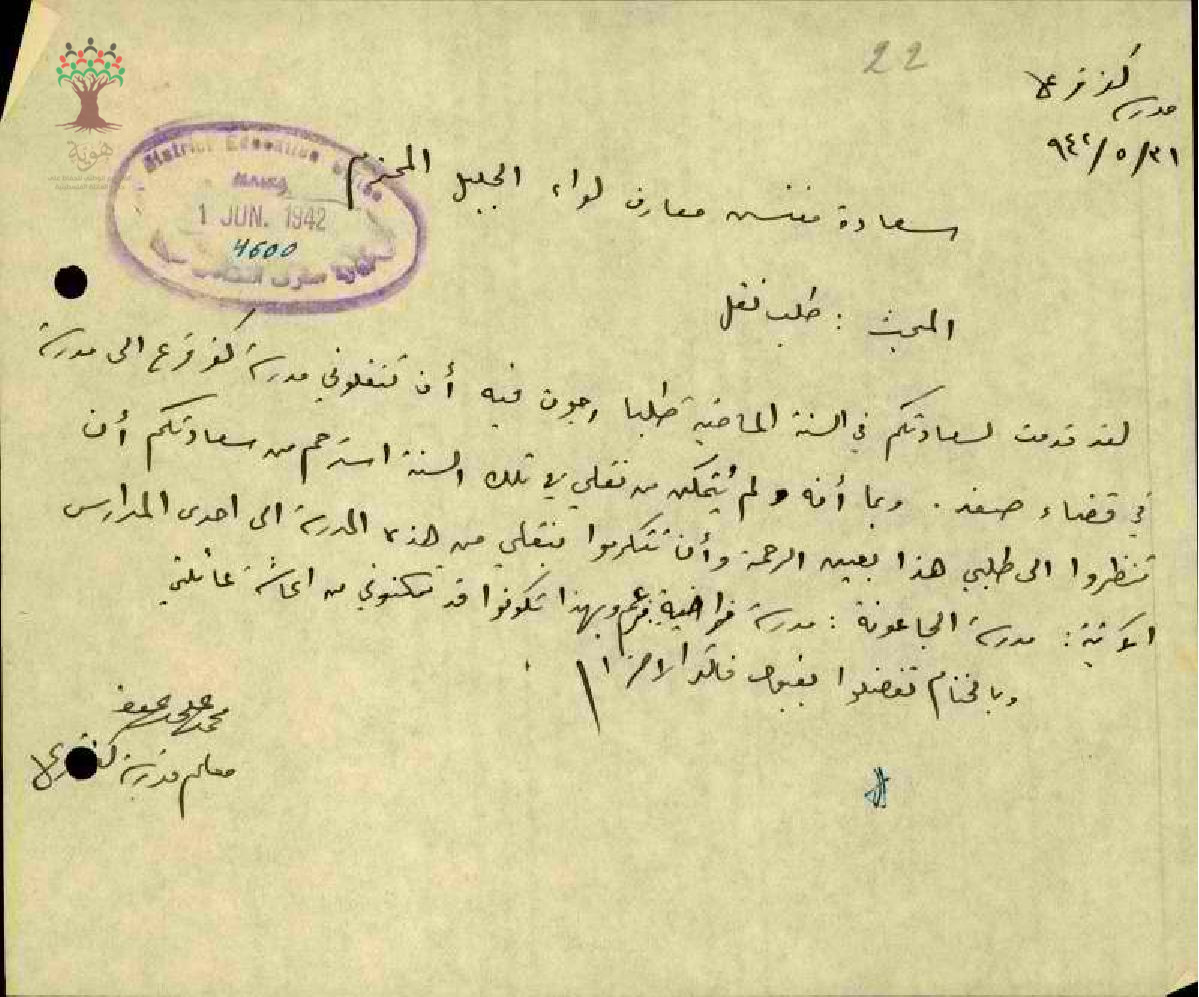 22
مدرسة كفر قرع
٣١/٥/٩٤٢
سعادة مفتش معارف لواء الجليل المحترم
District Education Office
HAIFA
1 JUN. 1942
4600
هوية
المبحث : طلب نقل
لقد قدمت لسعادتكم في السنة الماضية طلبا رجوت فيه أن تنقلوني مدرسة كفر قرع الى مدرسة
في قضاء صفد . وبما أنه ولم يُتمكن من نقلي تلك السنة استرحم من سعادتكم أن
تنظروا الى طلبي هذا بعين الرحمة وأن تتكرموا بنقلي من هذه المدرسة الى احدى المدارس
الآتية : مدرسة الجاعونة : مدرسة فراضية وبهذا تكونوا قد مكنتوني من اعاشة عائلتي
وبالختام تفضلوا بقبول فائق الاحترام
محمد
معلم مدرسة كفر قرع